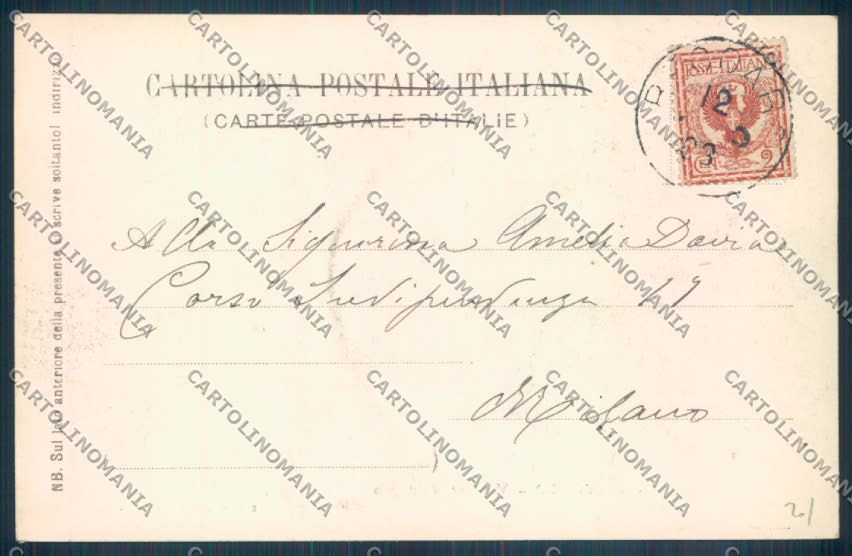 CARTOLINA POSTALE ITALIANA
(CARTE POSTALE D'ITALIE)
POSTE ITALIANE
CENT. 2
12
5
03
Alla Signorina Amelia Davia
Corso Indipendenza 17
Milano
NB. Sul lato anteriore della presente si scrive soltanto l'indirizzo
CARTOLINOMANIA